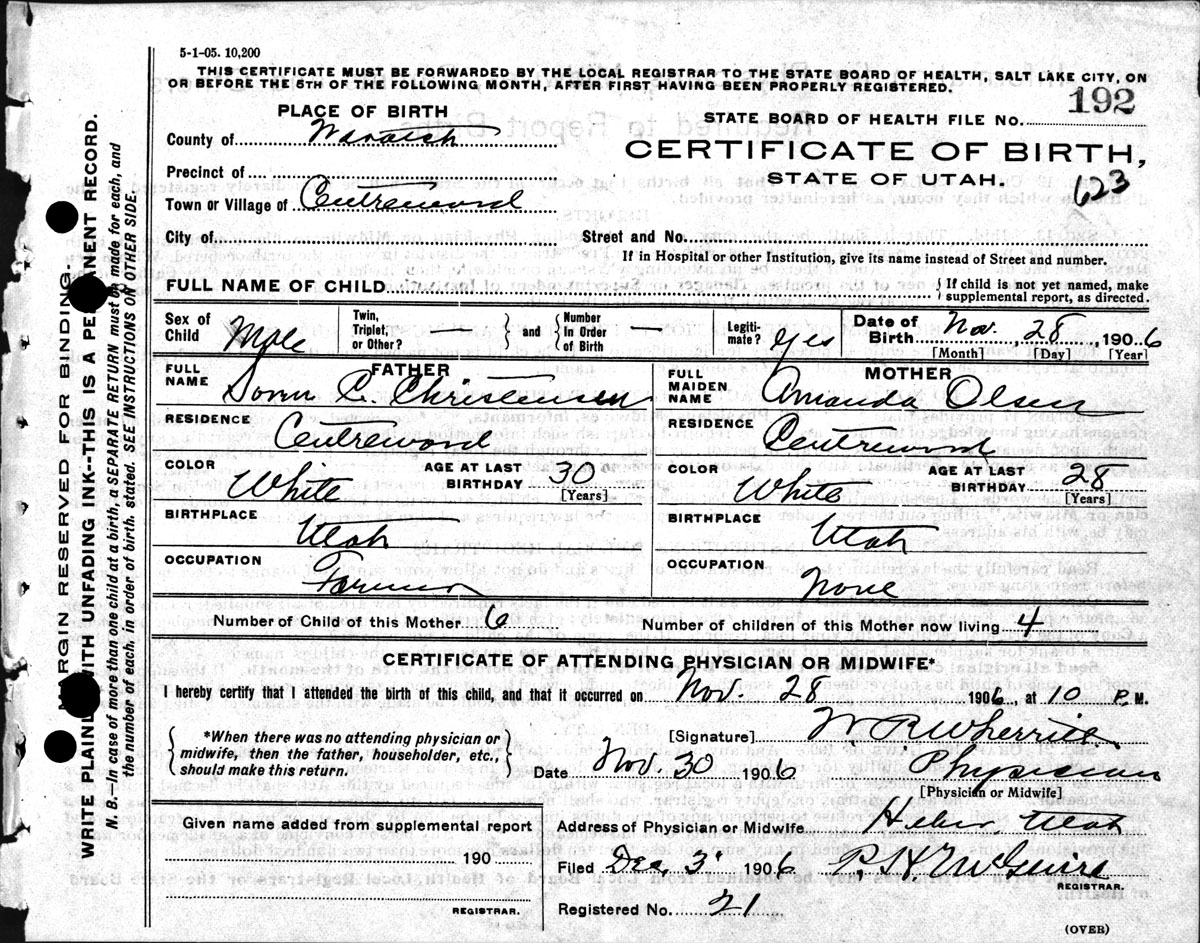 5-1-05. 10,200
THIS CERTIFICATE MUST BE FORWARDED BY THE LOCAL REGISTRAR TO THE STATE BOARD OF HEALTH, SALT LAKE CITY, ON
OR BEFORE THE 5TH OF THE FOLLOWING MONTH, AFTER FIRST HAVING BEEN PROPERLY REGISTERED.
PLACE OF BIRTH
STATE BOARD OF HEALTH FILE NO. 192
County of Wasatch
CERTIFICATE OF BIRTH,
Precinct of
STATE OF UTAH.
623
Town or Village of Centreword
City of
Street and No.
If in Hospital or other Institution, give its name instead of Street and number.
FULL NAME OF CHILD
{If child is not yet named, make
supplemental report, as directed.
Sex of Child Male
Twin, Triplet, or Other? } and { Number In Order of Birth —
Legiti-mate? Yes
Date of Birth Nov. 28, 1906
[Month] [Day] [Year]
FATHER
FULL NAME Soren C. Christensen
RESIDENCE Centreword
COLOR White
AGE AT LAST BIRTHDAY 30
[Years]
BIRTHPLACE Utah
OCCUPATION Farmer
MOTHER
FULL MAIDEN NAME Amanda Olsen
RESIDENCE Centreword
COLOR White
AGE AT LAST BIRTHDAY 28
[Years]
BIRTHPLACE Utah
OCCUPATION None
Number of Child of this Mother 6
Number of children of this Mother now living 4
CERTIFICATE OF ATTENDING PHYSICIAN OR MIDWIFE*
I hereby certify that I attended the birth of this child, and that it occurred on Nov. 28 1906, at 10 P.M.
{*When there was no attending physician or
midwife, then the father, householder, etc.,
should make this return.}
[Signature] W R Wherritt
Date Nov. 30 1906 Physician
[Physician or Midwife]
Given name added from supplemental report
190
REGISTRAR.
Address of Physician or Midwife Heber, Utah
Filed Dec, 3 1906 P. H. McGuire
REGISTRAR.
Registered No. 21
(OVER)
MARGIN RESERVED FOR BINDING.
WRITE PLAINLY WITH UNFADING INK--THIS IS A PERMANENT RECORD.
N. B.—In case of more than one child at a birth, a SEPARATE RETURN must be made for each, and
the number of each, in order of birth, stated. SEE INSTRUCTIONS ON OTHER SIDE.